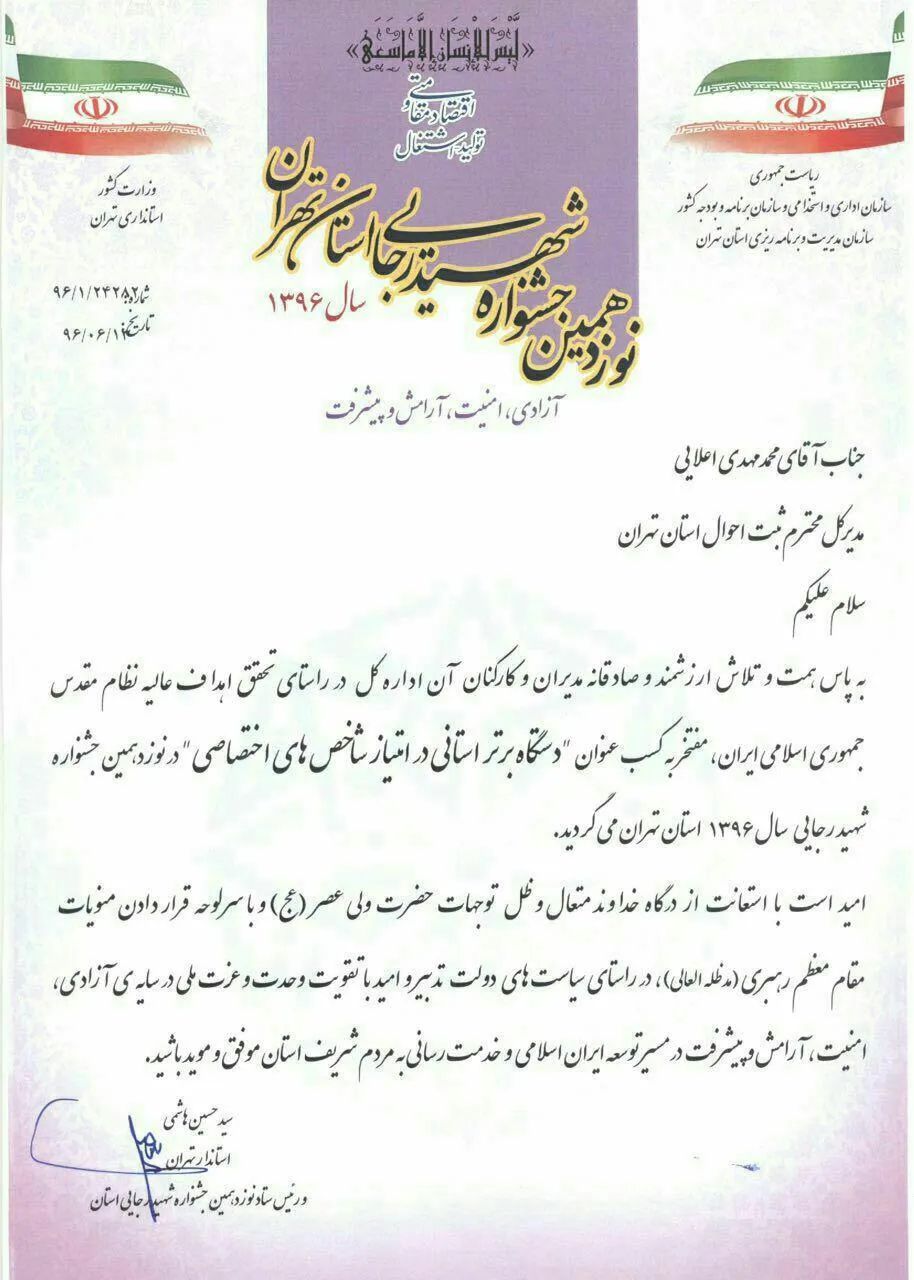 «لَّيْسَ لِلْإِنسَانِ إِلَّا مَا سَعَىٰ»
اقتصاد مقاومتی
تولید، اشتغال
نوزدهمین جشنواره شهید رجایی استان تهران
سال ۱۳۹۶
ریاست جمهوری
سازمان اداری و استخدامی و سازمان برنامه و بودجه کشور
سازمان مدیریت و برنامه ریزی استان تهران
وزارت کشور
استانداری تهران
شماره: ۹۶/۱/۲۴۲۸۲
تاریخ:
آزادی، امنیت، آرامش و پیشرفت
جناب آقای محمد مهدی اعلایی
مدیرکل محترم ثبت احوال استان تهران
سلام علیکم
به پاس همت و تلاش ارزشمند و صادقانه مدیران و کارکنان آن اداره کل در راستای تحقق اهداف عالیه نظام مقدس
جمهوری اسلامی ایران، مفتخر به کسب عنوان "دستگاه برتر استانی در امتیاز شاخص های اختصاصی" در نوزدهمین جشنواره
شهید رجایی سال ۱۳۹۶ استان تهران می گردید.
امید است با استعانت از درگاه خداوند متعال و ظل توجهات حضرت ولی عصر (عج) و با سرلوحه قرار دادن منویات
مقام معظم رهبری (مدظله العالی)، در راستای سیاست های دولت تدبیر و امید با تقویت وحدت و عزت ملی در سایه ی آزادی،
امنیت، آرامش و پیشرفت در مسیر توسعه ایران اسلامی و خدمت رسانی به مردم شریف استان موفق و موید باشید.
سید حسین هاشمی
استاندار تهران
و رئیس ستاد نوزدهمین جشنواره شهید رجایی استان